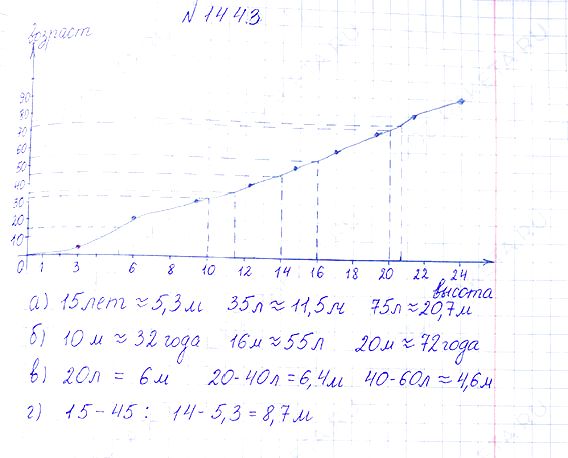 N 1443
возраст
90
80
70
60
50
40
30
20
10
0 1 3 6 8 10 12 14 16 18 20 22 24
высота
а) 15 лет ≈ 5,3 м 35л ≈ 11,5м 75л ≈ 20,7м
б) 10 м ≈ 32 года 16м ≈ 55л 20м ≈ 72 года
в) 20л = 6м 20-40л = 6,4м 40-60л ≈ 4,6м
г) 15-45 : 14-5,3 = 8,7м